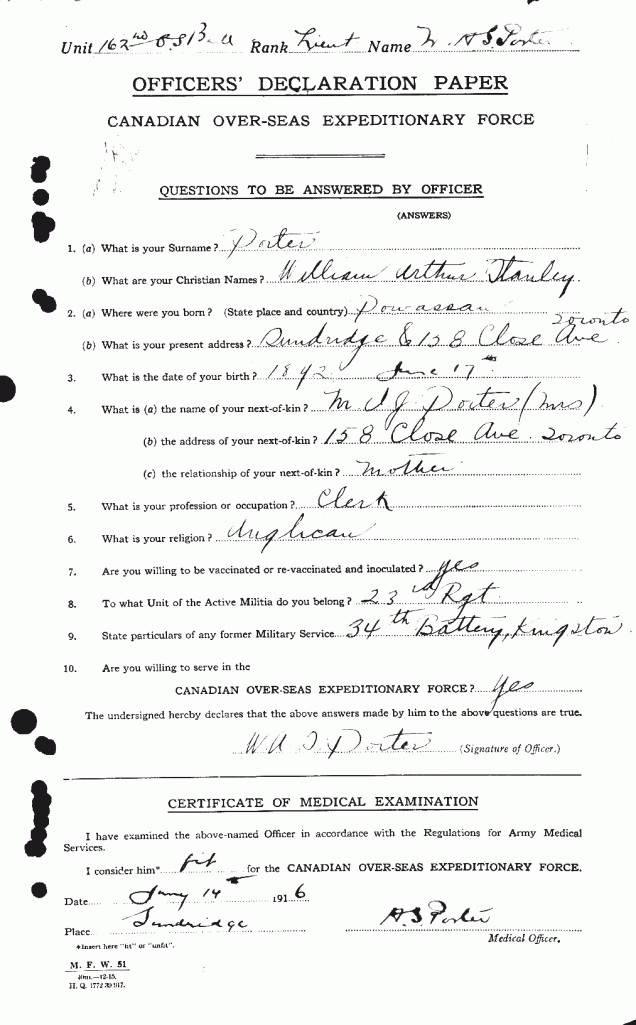 Unit 162nd O.S.B. Rank Lieut Name W. A S Porter
OFFICERS' DECLARATION PAPER
CANADIAN OVER-SEAS EXPEDITIONARY FORCE
QUESTIONS TO BE ANSWERED BY OFFICER
(ANSWERS)
1. (a) What is your Surname? Porter
(b) What are your Christian Names? William Arthur Stanley
2. (a) Where were you born? (State place and country) Powassan
(b) What is your present address? Sundridge & 158 Close Ave Toronto
3. What is the date of your birth? 1892 June 17th
4. What is (a) the name of your next-of-kin? M J Porter (Mrs)
(b) the address of your next-of-kin? 158 Close Ave. Toronto
(c) the relationship of your next-of-kin? Mother
5. What is your profession or occupation? Clerk
6. What is your religion? Anglican
7. Are you willing to be vaccinated or re-vaccinated and inoculated? Yes
8. To what Unit of the Active Militia do you belong? 23rd Rgt
9. State particulars of any former Military Service 34th Battery, Kingston.
10. Are you willing to serve in the
CANADIAN OVER-SEAS EXPEDITIONARY FORCE? Yes
The undersigned hereby declares that the above answers made by him to the above questions are true.
W A S Porter (Signature of Officer.)
CERTIFICATE OF MEDICAL EXAMINATION
I have examined the above-named Officer in accordance with the Regulations for Army Medical
Services.
I consider him* fit for the CANADIAN OVER-SEAS EXPEDITIONARY FORCE.
Date Jany 14th 1916
Place Sundridge
A.S. Porter
Medical Officer.
*Insert here "fit" or "unfit".
M. F. W. 51
40m.—12-15.
H. Q. 1772 39 917.